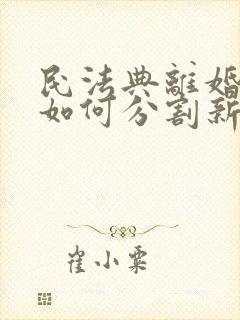 民法典離婚
如何分割新
崔小粟